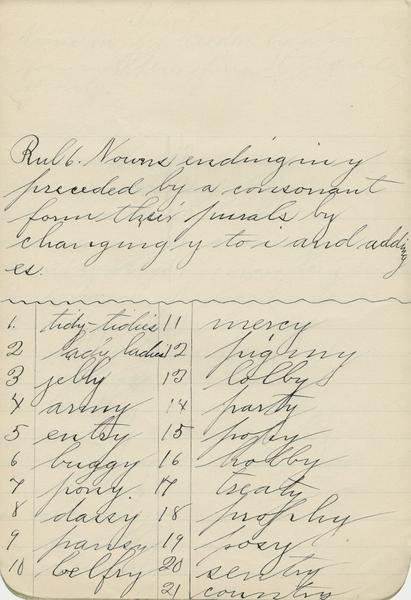 Rul 6. Nouns ending in y
preceded by a consonant
form their purals by
changing y to i and adding
es.
1. tidy-tidies 11 mercy
2 lady ladies 12 pigmy
3 jelly 13 lobby
4 army 14 party
5 entry 15 posy
6 buggy 16 hobby
7 pony. 17 treaty
8 daisy 18
9 pansy 19
10 belfry 20 sentry
21 country